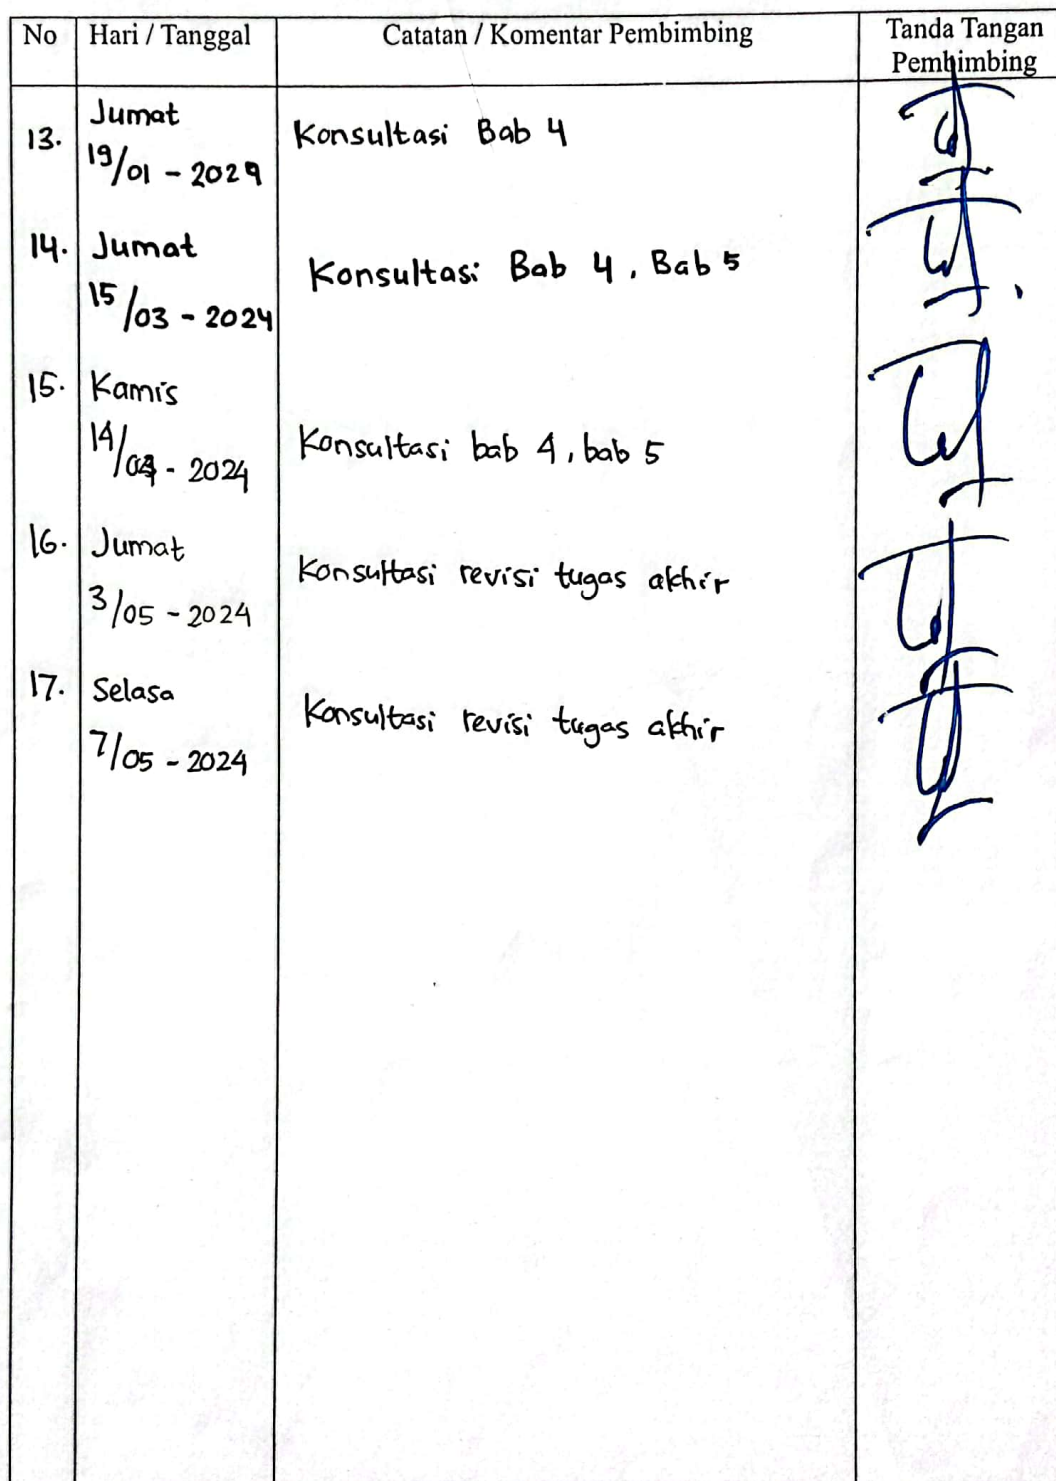 No Hari / Tanggal Catatan / Komentar Pembimbing Tanda Tangan
Pembimbing
13. Jumat
19/01 - 2024
Konsultasi Bab 4
14. Jumat
15/03 - 2024
Konsultasi Bab 4, Bab 5
15. Kamis
14/04 - 2024
Konsultasi bab 4, bab 5
16. Jumat
3/05 - 2024
Konsultasi revisi tugas akhir
17. Selasa
7/05 - 2024
Konsultasi revisi tugas akhir